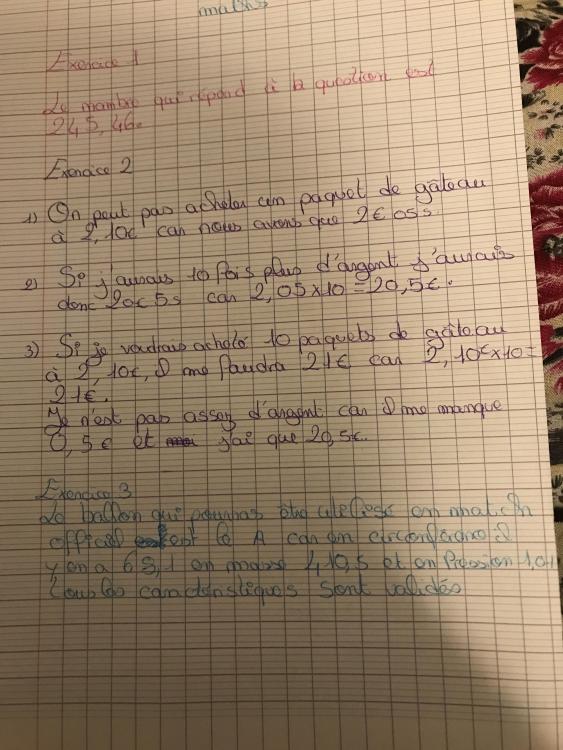 maths
Exercice 1
Le nombre qui répond à la question est
245,46.
Exercice 2
1) On peut pas acheter un paquet de gâteau
à 2,10€ car nous avons que 2€05s.
2) Si j'aurais 10 fois plus d'argent j'aurais
donc 20€5s car 2,05x10=20,5€.
3) Si je voudrais acheté 10 paquets de gâteau
à 2,10€, il me faudra 21€ car 2,10€x10=
21€.
Je n'est pas assez d'argent car il me manque
0,5€ et j'ai que 20,5€.
Exercice 3
Le ballon qui pourras être uteliser en match
officiel est le A car en circonférence il
y en a 68,1 en masse 410,5 et en Préssion 1,01
Tous les caractéristiques sont validés